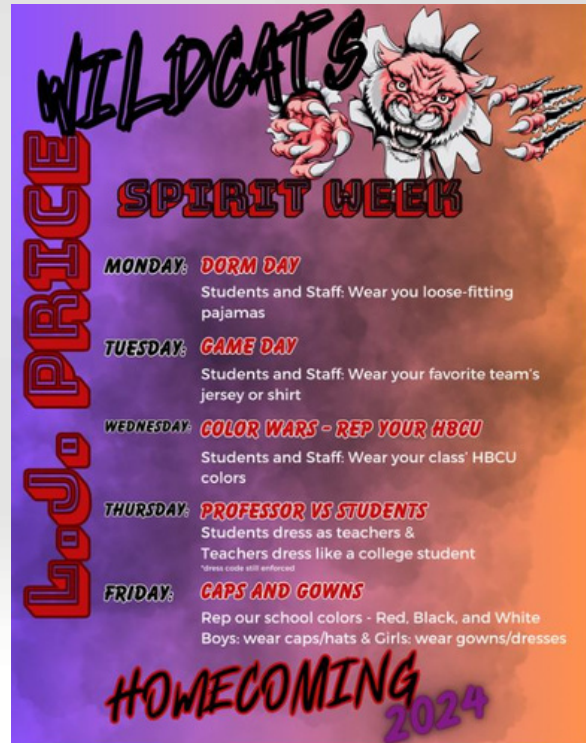 WILDCATS
L.J. PRICE
SPIRIT WEEK
MONDAY: DORM DAY
Students and Staff: Wear you loose-fitting
pajamas
TUESDAY: GAME DAY
Students and Staff: Wear your favorite team's
jersey or shirt
WEDNESDAY: COLOR WARS - REP YOUR HBCU
Students and Staff: Wear your class' HBCU
colors
THURSDAY: PROFESSOR VS STUDENTS
Students dress as teachers &
Teachers dress like a college student
*dress code still enforced
FRIDAY: CAPS AND GOWNS
Rep our school colors - Red, Black, and White
Boys: wear caps/hats & Girls: wear gowns/dresses
HOMECOMING
2024